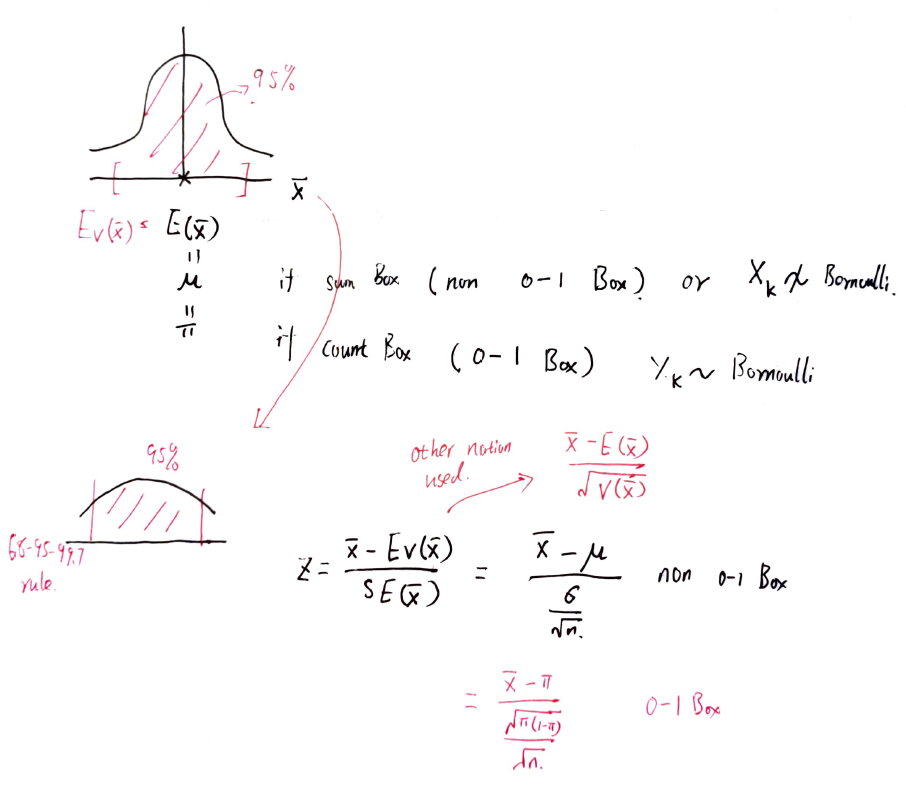 95%
x̄
Ev(x̄) = E(x̄)
=
μ if sum Box (non 0-1 Box) or X_k ≁ Bornoulli.
=
π if count Box (0-1 Box) Y_k ~ Bornoulli
95%
68-95-99.7
rule.
other notion
used. → (x̄ - E(x̄)) / √V(x̄)
Z = (x̄ - Ev(x̄)) / SE(x̄) = (x̄ - μ) / (σ / √n.) non 0-1 Box
= (x̄ - π) / (√π(1-π) / √n.) 0-1 Box